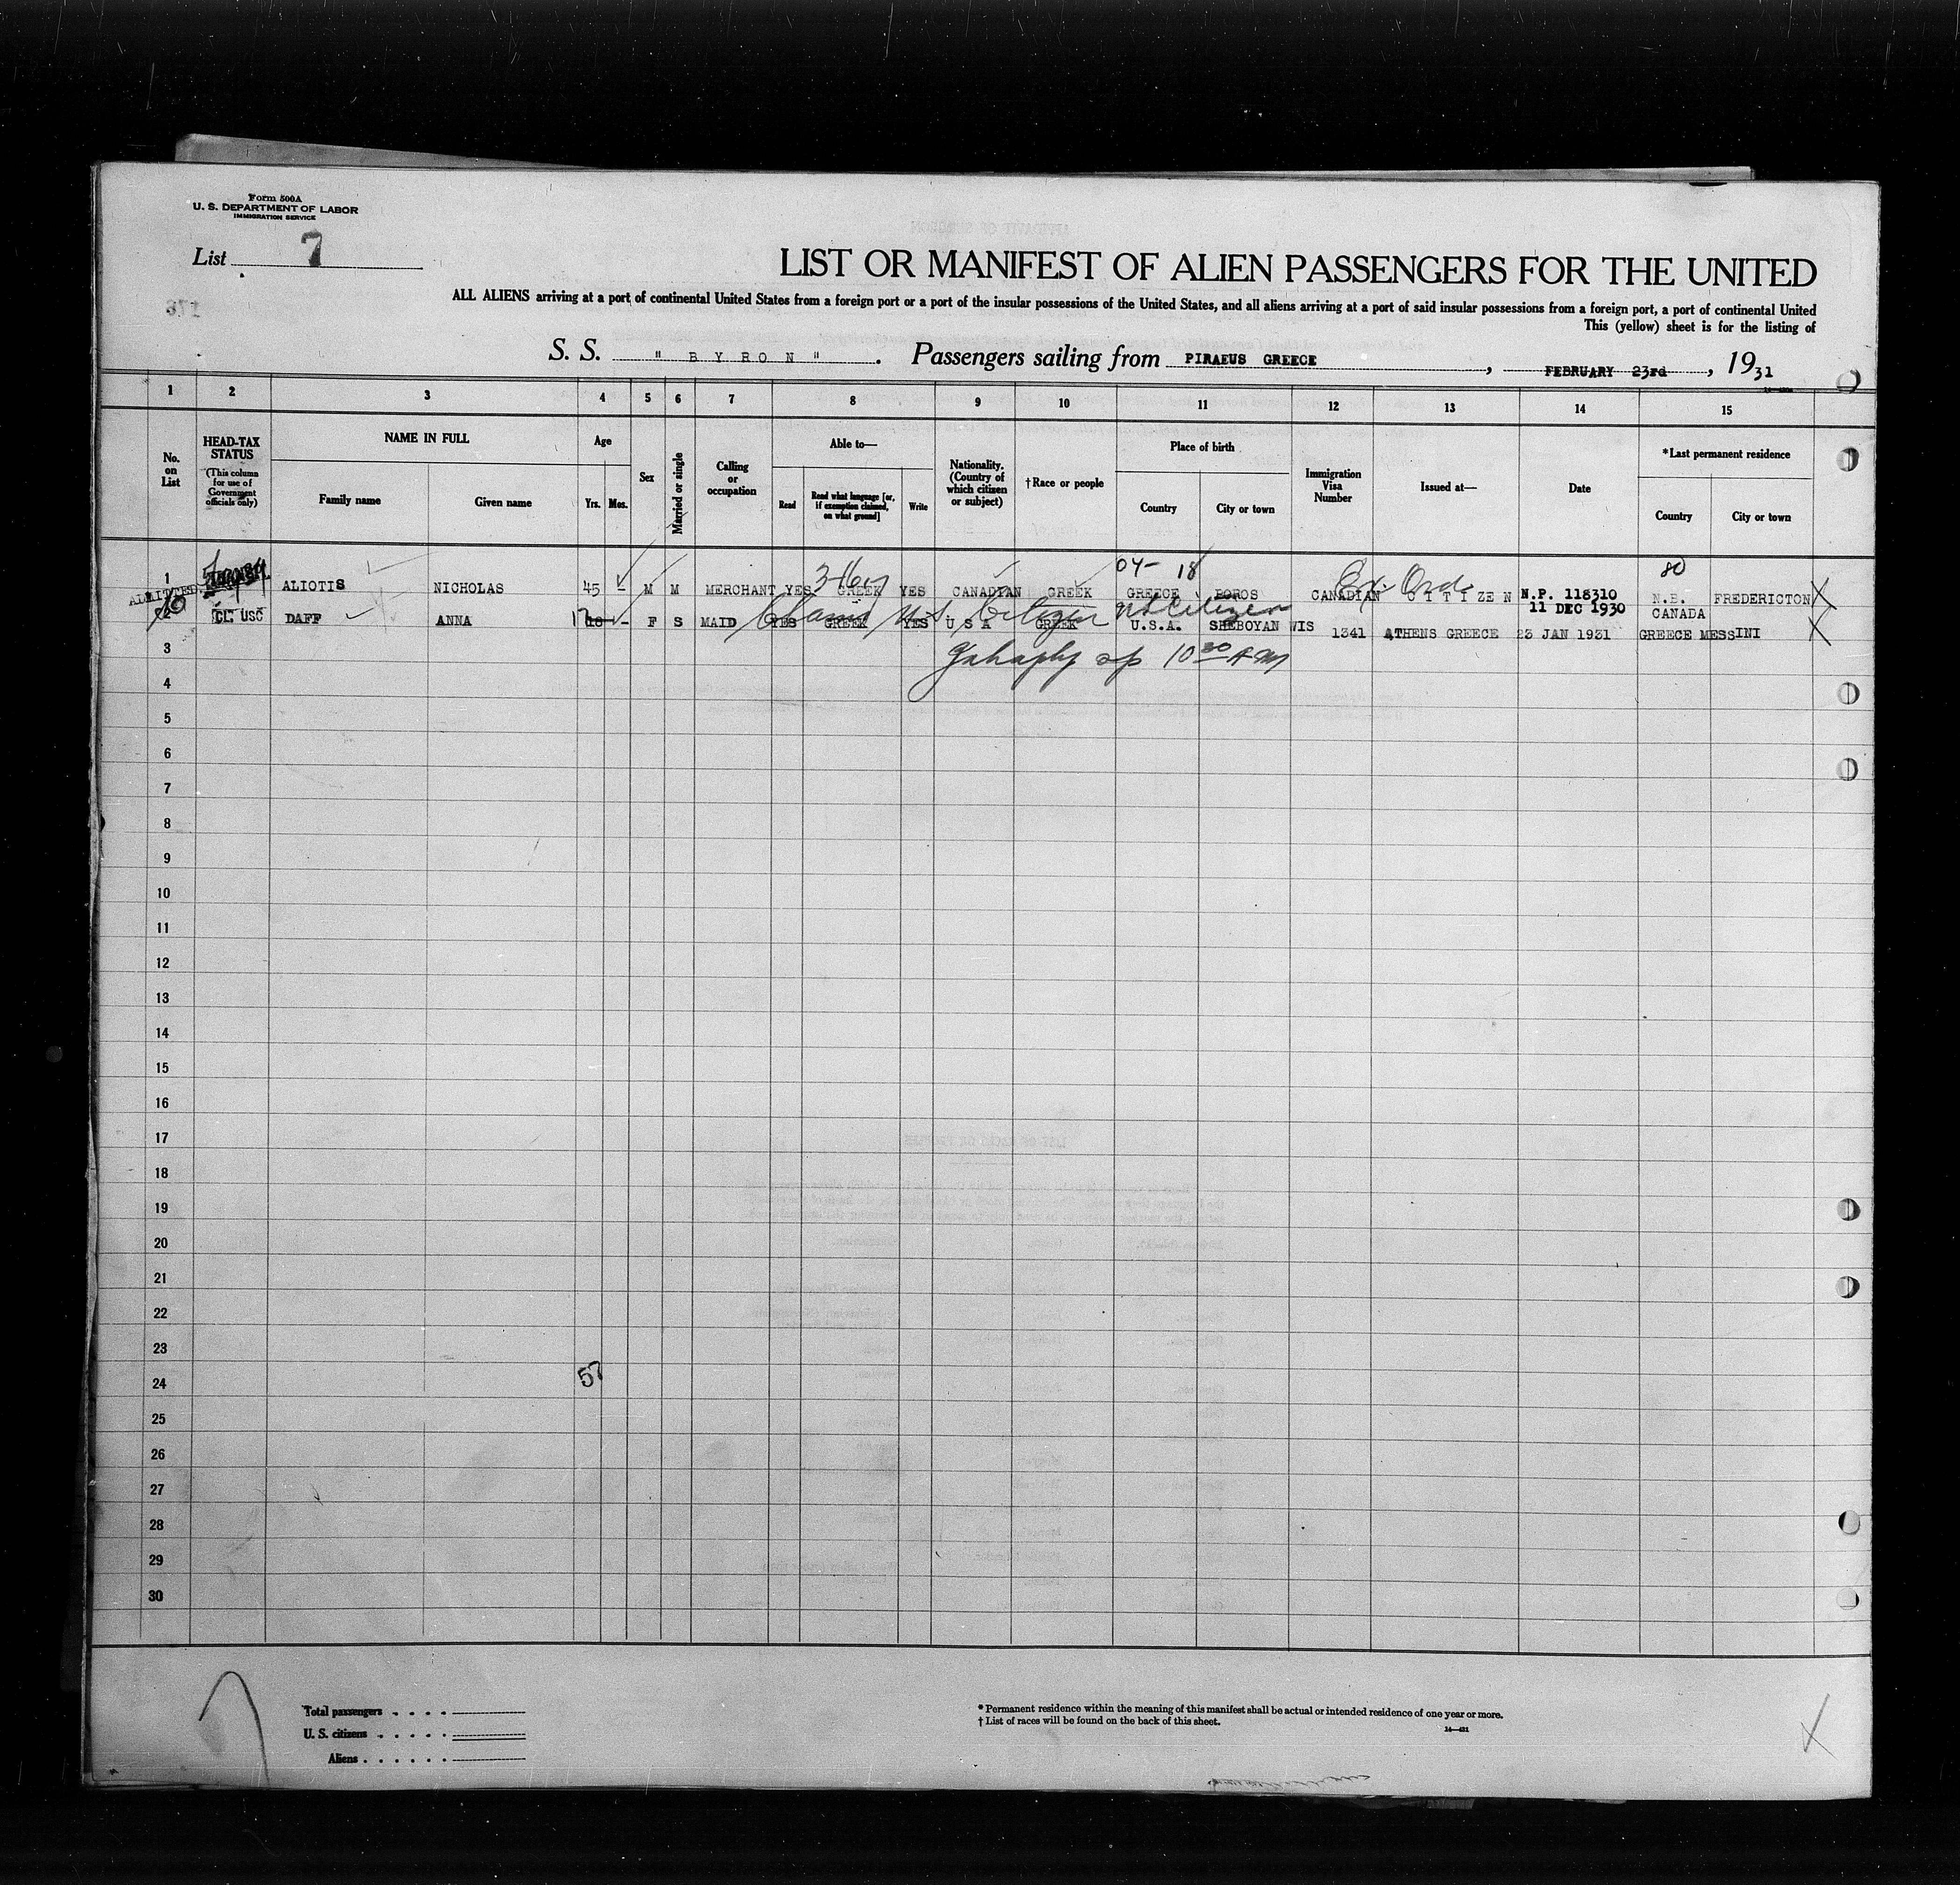 Form 500A
U. S. DEPARTMENT OF LABOR
IMMIGRATION SERVICE
List 7
LIST OR MANIFEST OF ALIEN PASSENGERS FOR THE UNITED
371
ALL ALIENS arriving at a port of continental United States from a foreign port or a port of the insular possessions of the United States, and all aliens arriving at a port of said insular possessions from a foreign port, a port of continental United
This (yellow) sheet is for the listing of
S. S. " B Y R O N " . Passengers sailing from PIRAEUS GREECE , FEBRUARY 23rd , 1931
1 2 3 4 5 6 7 8 9 10 11 12 13 14 15
No. on List
HEAD-TAX STATUS
(This column for use of Government officials only)
NAME IN FULL
Family name Given name
Age
Yrs. Mos.
Sex
Married or single
Calling or occupation
Able to—
Read Read what language [or, if exemption claimed, on what ground] Write
Nationality. (Country of which citizen or subject)
†Race or people
Place of birth
Country City or town
Immigration Visa Number
Issued at—
Date
*Last permanent residence
Country City or town
04- 18 80
1 ALIOTIS NICHOLAS 45 - M M MERCHANT YES GREEK YES CANADIAN GREEK GREECE BOROS CANADIAN C I T I Z E N N.P. 118310 N.B. FREDERICTON
ADMITTED
11 DEC 1930 CANADA
CL. USC DAFF ANNA 17 18 - F S MAID YES GREEK YES U S A GREEK U.S.A. SHEBOYAN WIS 1341 ATHENS GREECE 23 JAN 1931 GREECE MESSINI
U.S. Citizen
10 30 AM
3
4
5
6
7
8
9
10
11
12
13
14
15
16
17
18
19
20
21
22
23
24
57
25
26
27
28
29
30
Total passengers
U. S. citizens
Aliens
* Permanent residence within the meaning of this manifest shall be actual or intended residence of one year or more.
† List of races will be found on the back of this sheet.
14—421